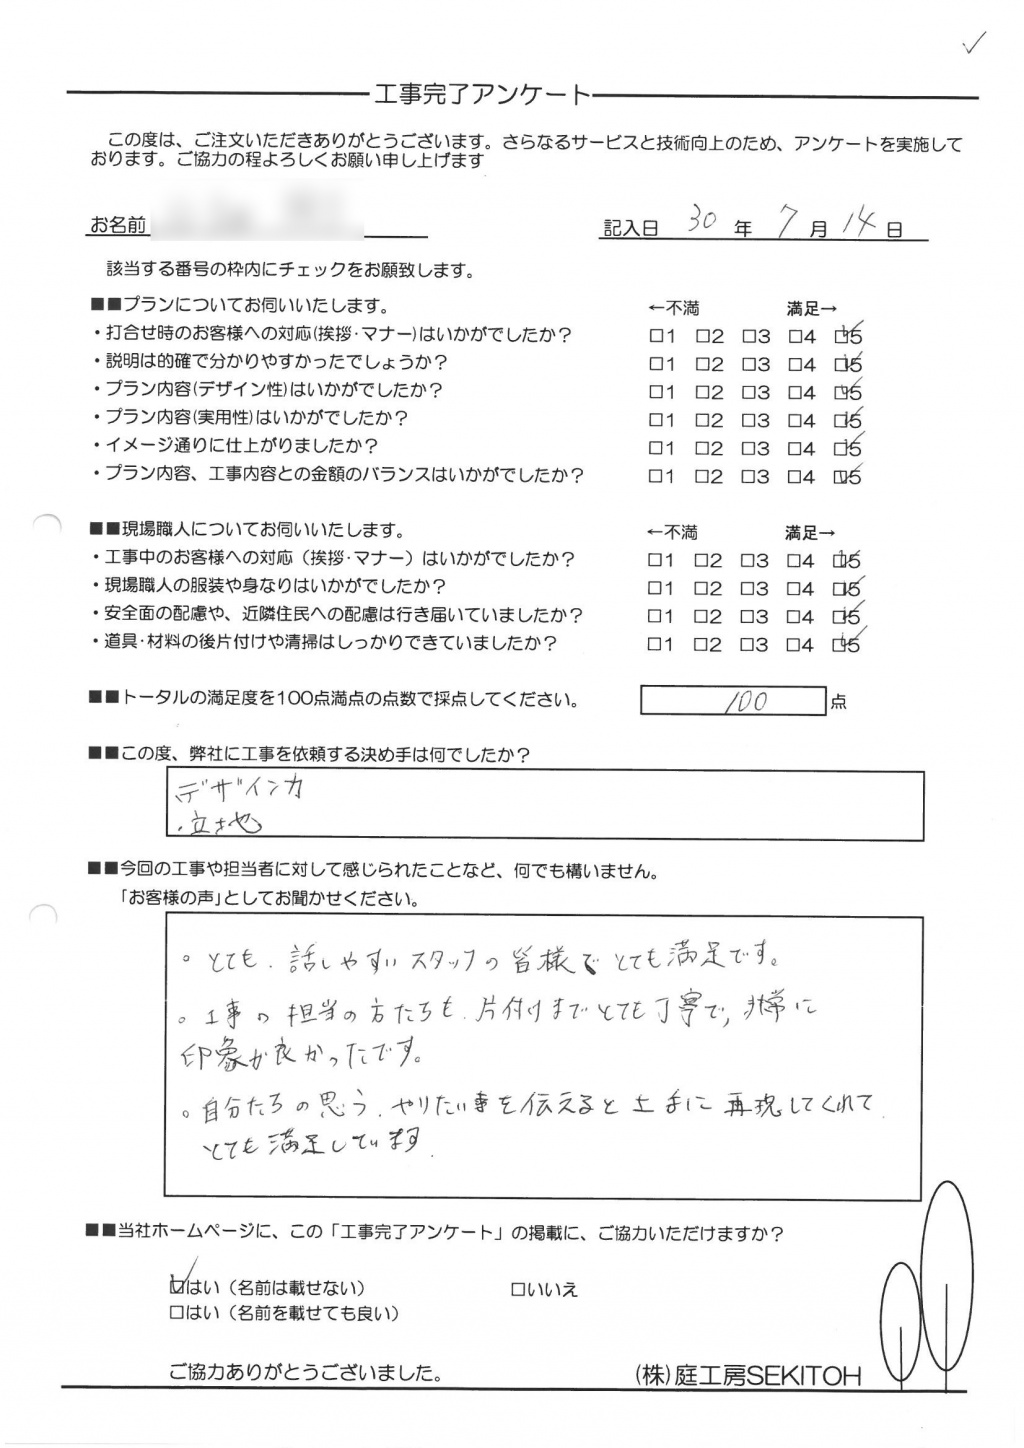 工事完了アンケート
この度は、ご注文いただきありがとうございます。さらなるサービスと技術向上のため、アンケートを実施して
おります。ご協力の程よろしくお願い申し上げます
お名前
記入日 30 年 7 月 14 日
該当する番号の枠内にチェックをお願致します。
■■プランについてお伺いいたします。 ←不満 満足→
・打合せ時のお客様への対応(挨拶・マナー)はいかがでしたか? □1 □2 □3 □4 ☑5
・説明は的確で分かりやすかったでしょうか? □1 □2 □3 □4 ☑5
・プラン内容(デザイン性)はいかがでしたか? □1 □2 □3 □4 ☑5
・プラン内容(実用性)はいかがでしたか? □1 □2 □3 □4 ☑5
・イメージ通りに仕上がりましたか? □1 □2 □3 □4 ☑5
・プラン内容、工事内容との金額のバランスはいかがでしたか? □1 □2 □3 □4 ☑5
■■現場職人についてお伺いいたします。 ←不満 満足→
・工事中のお客様への対応（挨拶・マナー）はいかがでしたか? □1 □2 □3 □4 ☑5
・現場職人の服装や身なりはいかがでしたか? □1 □2 □3 □4 ☑5
・安全面の配慮や、近隣住民への配慮は行き届いていましたか? □1 □2 □3 □4 ☑5
・道具・材料の後片付けや清掃はしっかりできていましたか? □1 □2 □3 □4 ☑5
■■トータルの満足度を100点満点の点数で採点してください。 100 点
■■この度、弊社に工事を依頼する決め手は何でしたか?
・デザイン力
・立地
■■今回の工事や担当者に対して感じられたことなど、何でも構いません。
「お客様の声」としてお聞かせください。
。とても、話しやすいスタッフの皆様でとても満足です。
。工事の担当の方たちも、片付けまでとても丁寧で、非常に
印象が良かったです。
。自分たちの思う、やりたい事を伝えると上手に再現してくれて
とても満足しています.
■■当社ホームページに、この「工事完了アンケート」の掲載に、ご協力いただけますか?
☑はい（名前は載せない） □いいえ
□はい（名前を載せても良い）
ご協力ありがとうございました。
(株)庭工房SEKITOH